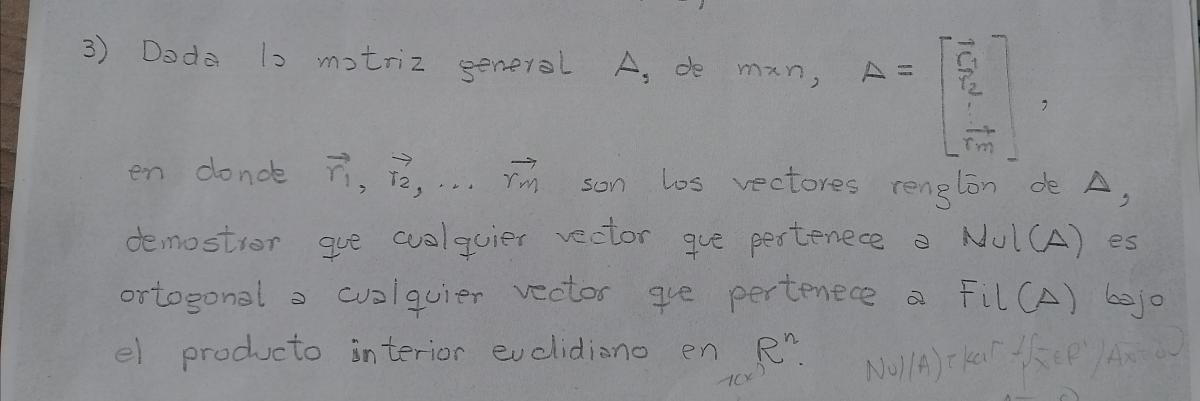 3) Dada la matriz general A, de mxn, A = [r⃗1 r⃗2 ... r⃗m],
en donde r⃗1, r⃗2, ... r⃗m son los vectores renglón de A,
demostrar que cualquier vector que pertenece a Nul(A) es
ortogonal a cualquier vector que pertenece a Fil(A) bajo
el producto interior euclidiano en Rⁿ.
Nul(A)